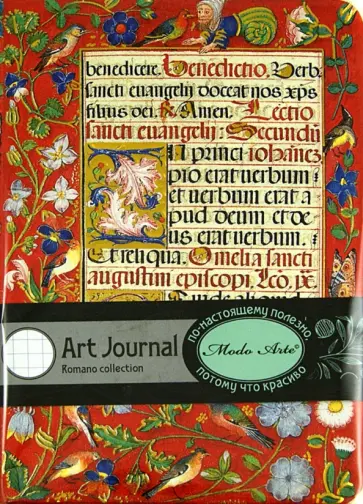 benedicere. Benedictio. Verb
sancti euangelij doceat nos xp̄s
filius dei. Amen. Lectio
sancti euangelij: Secundū
In princi iohānez
pio erat uerbum
et uerbum erat a
pud deum et de
us erat uerbum.
Et reliqua. Omelia sancti
augustini episcopi. Leo. pē.
Art Journal
Romano collection
по-настоящему полезно
Modo Arte®
потому что красиво